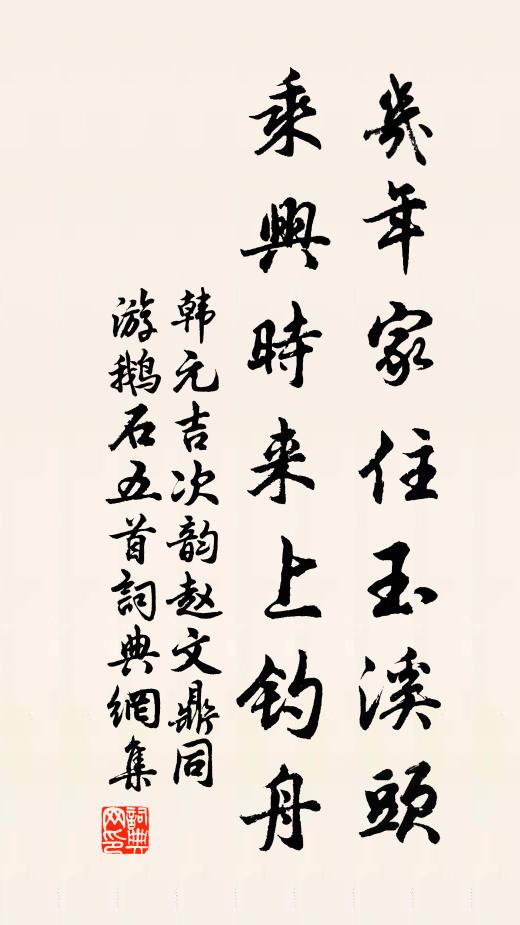 幾年家住玉溪頭
乘興時来上钓舟
韩元吉次韵赵文鼎同
游鹅石五首詞典網集
詞典
网印